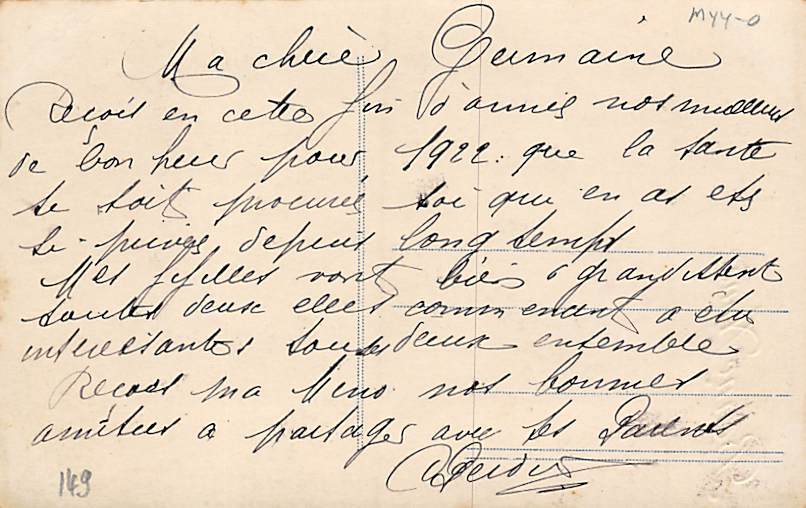 M44-0
Ma chère Germaine
Reçois en cette fin d'année nos meilleurs
de bonheur pour 1922. que la sante
te soit procurée toi que en as ete
se privée depuis longtemps
Mes fifilles vont bien & grandissent
toutes deux elles commencent a être
interessantes toutes deux ensemble
Recois ma Nino nos bonnes
amitiees a partager avec tes Parents
149